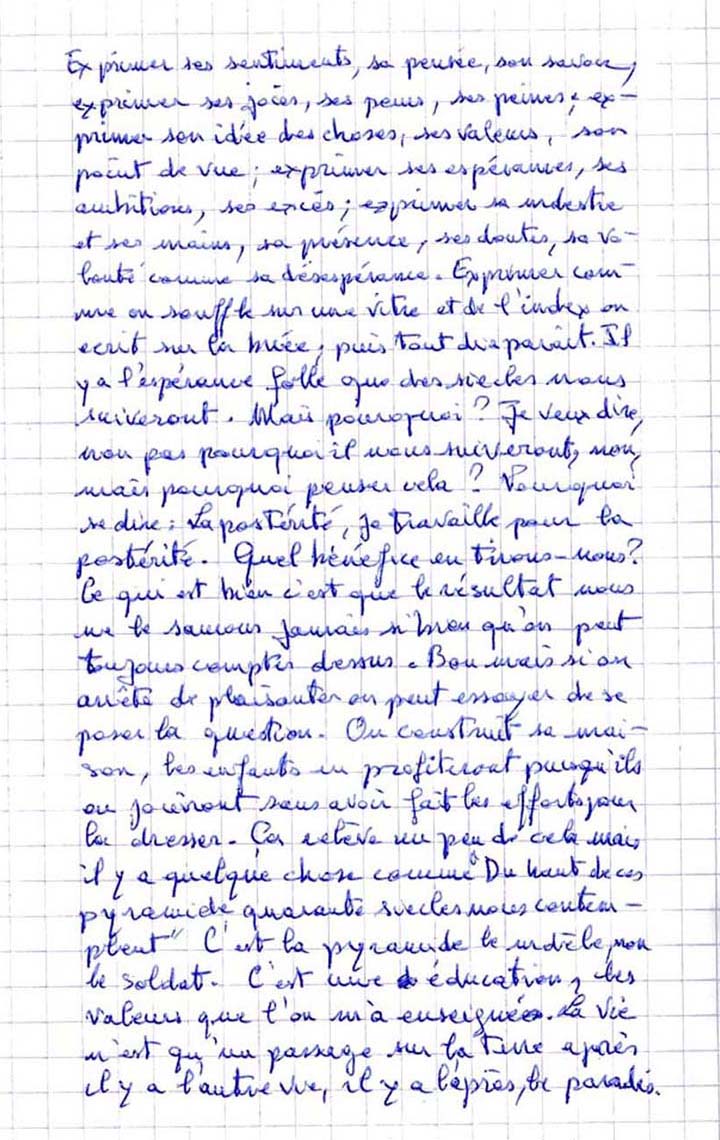 Exprimer ses sentiments, sa pensée, son savoir,
exprimer ses joies, ses peurs, ses peines; ex-
primer son idée des choses, ses valeurs, son
point de vue; exprimer ses espérances, ses
ambitions, ses excès; exprimer sa modestie
et ses mains, sa présence, ses doutes, sa vo-
lonté comme sa désespérance. Exprimer com-
me on souffle sur une vitre et de l'index on
ecrit sur la buée, puis tout disparait. Il
y a l'espérance folle que des siecles nous
suiveront. Mais pourquoi? Je veux dire,
non pas pourquoi il nous suiveront, non,
mais pourquoi penser cela? Pourquoi
se dire: La postérité, je travaille pour la
postérité. Quel bénéfice en tirons-nous?
Ce qui est bien c'est que le résultat nous
ne le saurons jamais si bien qu'on peut
toujours compter dessus. Bon mais si on
arrête de plaisanter on peut essayer de se
poser la question. On construit sa mai-
son, les enfants en profiteront puisqu'ils
en joüiront sans avoir fait les efforts pour
la dresser. Ça relève un peu de cela mais
il y a quelque chose comme "Du haut de ces
pyramide quarante siecles nous contem-
plent" C'est la pyramide le modèle, non
le soldat. C'est une éducation, les
valeurs que l'on m'a enseignées. La vie
n'est qu'un passage sur la Terre après
il y a l'autre vie, il y a l'après, le paradis.